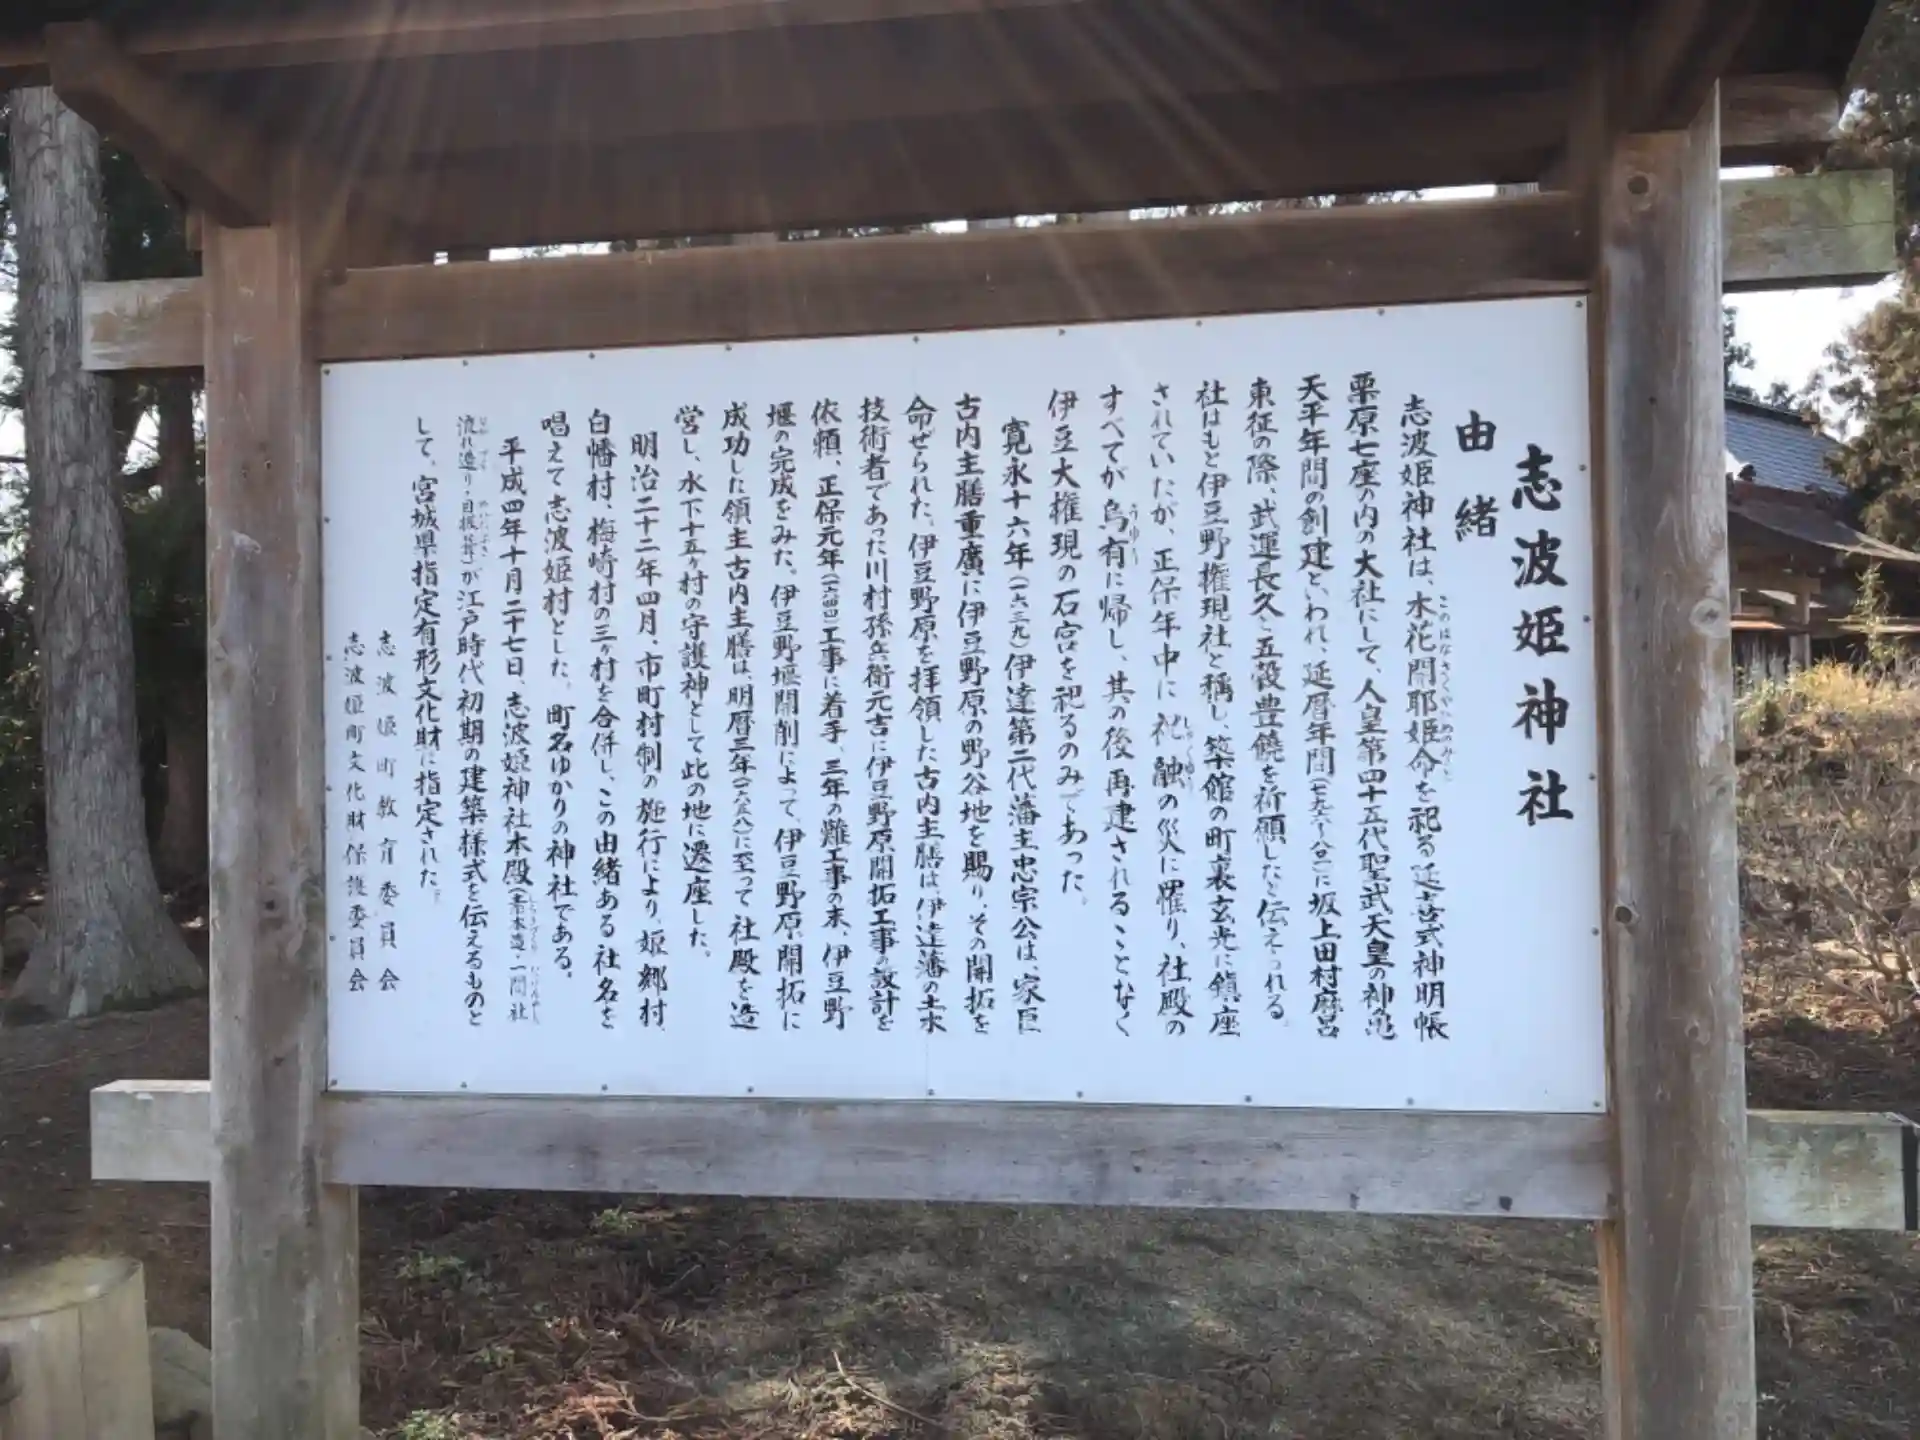 志波姫神社
由緒
志波姫神社は、木花開耶姫命を祀る延喜式神明帳
栗原七座の内の大社にして、人皇第四十五代聖武天皇の神亀
天平年間の創建といわれ、延暦年間(七九六〜八〇一)に坂上田村麿呂
東征の際、武運長久と五穀豊饒を祈願したと伝えられる。
社はもと伊豆野権現社と稱し、築館の町裏玄光に鎮座
されていたが、正保年中に祝融の災に罹り、社殿の
すべてが烏有に帰し、其の後再建されることなく
伊豆大権現の石宮を祀るのみであった。
寛永十六年(一六三九)伊達第二代藩主忠宗公は、家臣
古内主膳重廣に伊豆野原の野谷地を賜り、その開拓を
命ぜられた。伊豆野原を拝領した古内主膳は、伊達藩の土木
技術者であった川村孫兵衛元吉に伊豆野原開拓工事の設計を
依頼、正保元年(一六四四)工事に着手、三年の難工事の末、伊豆野
堰の完成をみた。伊豆野堰開削によって、伊豆野原開拓に
成功した領主古内主膳は、明暦三年(一六五八)に至って社殿を造
営し、水下十五ヶ村の守護神として此の地に遷座した。
明治二十二年四月、市町村制の施行により、姫郷村、
白幡村、梅崎村の三ヶ村を合併し、この由緒ある社名を
唱えて志波姫村とした。町名ゆかりの神社である。
平成四年十月二十七日、志波姫神社本殿(素木造・一間社
流れ造り・目板葺)が江戸時代初期の建築様式を伝えるものと
して、宮城県指定有形文化財に指定された。
志波姫町教育委員会
志波姫町文化財保護委員会